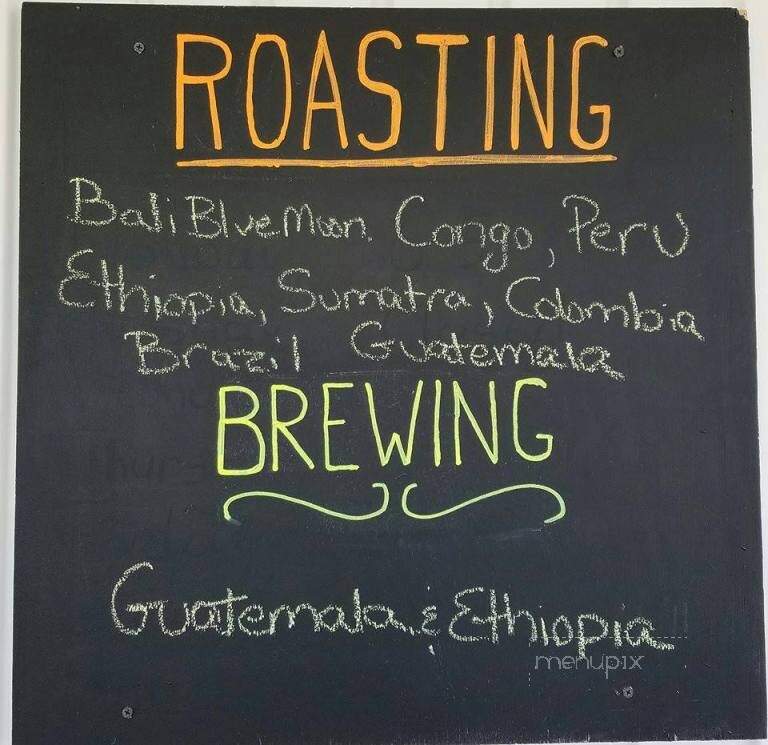 ROASTING
Bali Blue Moon, Congo, Peru
Ethiopia, Sumatra, Colombia
Brazil Guatemala
BREWING
Guatemala & Ethiopia
menupix